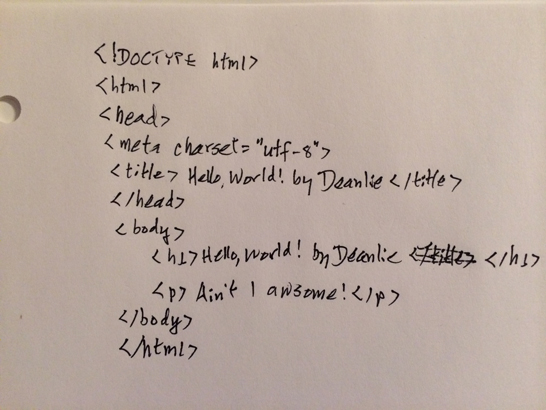 <!DOCTYPE html>
<html>
<head>
<meta charset="utf-8">
<title> Hello, World! by Deanlie </title>
</head>
<body>
<h1> Hello, World! by Deanlie </title> </h1>
<p> Ain't I awsome! </p>
</body>
</html>